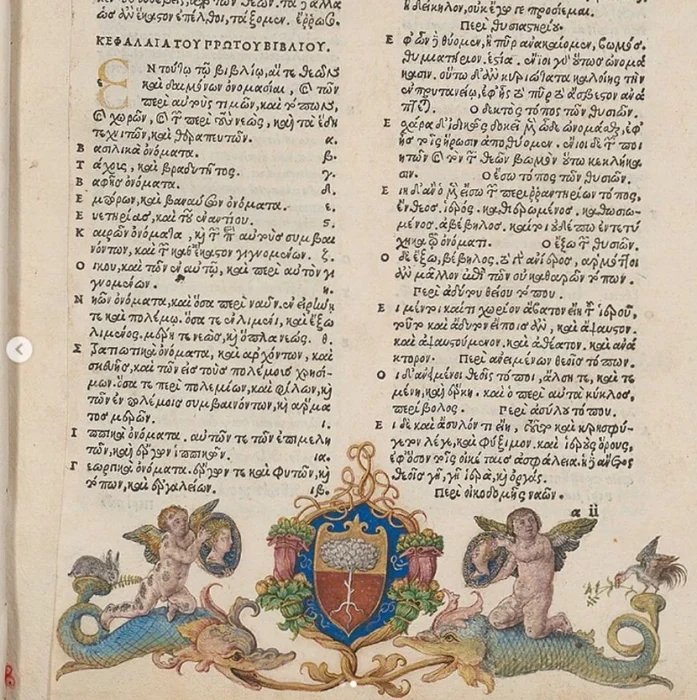 ὡς ἂν ἕκαστον ἐπέλθοι, τάξομεν. ἔρρωσο.
ΚΕΦΑΛΑΙΑ ΤΟΥ ΠΡΩΤΟΥ ΒΙΒΛΙΟΥ.
ΕΝ τούτῳ τῷ βιβλίῳ, αἵ τε θεῶν
καὶ δαιμόνων ὀνομασίαι, καὶ τῶν
περὶ αὐτοὺς τιμῶν, καὶ τόπων,
καὶ χωρῶν, καὶ τῶν περὶ τοὺς νεώς, καὶ τὰ ἕδη
τεχνιτῶν, καὶ θεραπευτῶν. α.
Βασιλικὰ ὀνόματα. β.
Τάχος, καὶ βραδυτῆτος. γ.
Βαφῆς ὀνόματα. δ.
Ἐμπόρων, καὶ βαναύσων ὀνόματα. ε.
Εὐετηρίας, καὶ τοῦ ἐναντίου. ς.
Καιρῶν ὀνόματα, καὶ τῶν παρ' αὐτοὺς συμβαι
νόντων, καὶ τῶν καθ' ἕκαστον γιγνομένων. ζ.
Οἴκου, καὶ τῶν ἐν αὐτῷ, καὶ περὶ αὐτὸν γι
γνομένων. η.
Νηῶν ὀνόματα, καὶ ὅσα περὶ ναῦν. ἐν εἰρήνῃ
τε καὶ πολέμῳ. ὅσα τε ἐν λιμένι, καὶ ἔξω
λιμένος. μέρη τε νεώς, καὶ ὅπλα νεώς. θ.
Στρατιωτικὰ ὀνόματα, καὶ ἀρχόντων, καὶ
σκευῆς, καὶ τῶν εἰς τοὺς πολέμους χρησί-
μων. ὅσα τε περὶ πολεμίων, καὶ φίλων, καὶ
τῶν ἐν πολέμοις συμβαινόντων, καὶ ἅρμα
τος μερῶν. ι.
Ἱππικὰ ὀνόματα. αὐτῶν τε τῶν ἐπιμελη
τῶν, καὶ ἔργων ἱππικῶν. ια.
Γεωργικὰ ὀνόματα. ἔργων τε καὶ φυτῶν, καὶ
τόπων, καὶ ἐργαλείων. ιβ.
Περὶ θυσιαστηρίου.
Ἐφ' ὧν ἢ θύομεν, ἢ πῦρ ἀνακαίομεν, βωμός.
θυμιατήριον. ἑστία. ἔνιοι γὰρ οὕτως ὠνομά
κασιν. οὕτω δ' ἂν κυριώτατα καλοίης τὴν
ἐν πρυτανείῳ, ἐφ' ἧς τὸ πῦρ τὸ ἄσβεστον ἀνά
πτεται. Ὁ δεκτὸς τόπος τῶν θυσιῶν.
Ἐσχάρα δ' ἰδικῶς δοκεῖ μὲν ὧδε ὠνομάσθαι, ἐφ'
ἧς τοῖς ἥρωσιν ἀποθύομεν. ἔνιοι δὲ τῶν ποι
ητῶν καὶ τὸν τῶν θεῶν βωμὸν οὕτω κεκλήκα
σιν. Ὁ ἔσω τόπος τῶν θυσιῶν.
Εἴη δ' ἂν ὁ μὲν εἴσω τῶν περιρραντηρίων τόπος,
ἔνθεος. ἱερός. καθιερωμένος. καθωσιω-
μένος. ἀβέβηλος.
Ὁ ἔξω τῶν θυσιῶν.
Ὁ δὲ ἔξω, βέβηλος.
Περὶ ἀδύτου θείου τόπου.
Εἰ μέντοι καί τι χωρίον ἄβατον εἴη τοῦ ἱεροῦ,
τοῦτο καὶ ἄδυτον εἴποις ἄν, καὶ ἄψαυστον.
καὶ ἀψαυστούμενον. καὶ ἀθέατον. καὶ ἀνά
κτορον. Περὶ ἀνειμένων θεοῖς τόπων.
Οἱ δ' ἀνειμένοι θεοῖς τόποι, ἄλση τε, καὶ τε
μένη, καὶ ἕρκη. καὶ ὁ περὶ αὐτὰ κύκλος,
περίβολος. Περὶ ἀσύλου τόπου.
Εἰ δὲ καὶ ἄσυλόν τι εἴη, τοῦτο καὶ κρησφύ-
γετον λέγε, καὶ φύξιμον. καὶ ἱεροὺς ὅρους,
ἐφ' ὅσον τοῖς οἰκέταις ἀσφάλεια. ἡ δὲ ἄνετος
θεοῖς γῆ, γῆ ἱερά, καὶ ὀργάς.
Περὶ οἰκοδομῆς ναῶν.
a ii